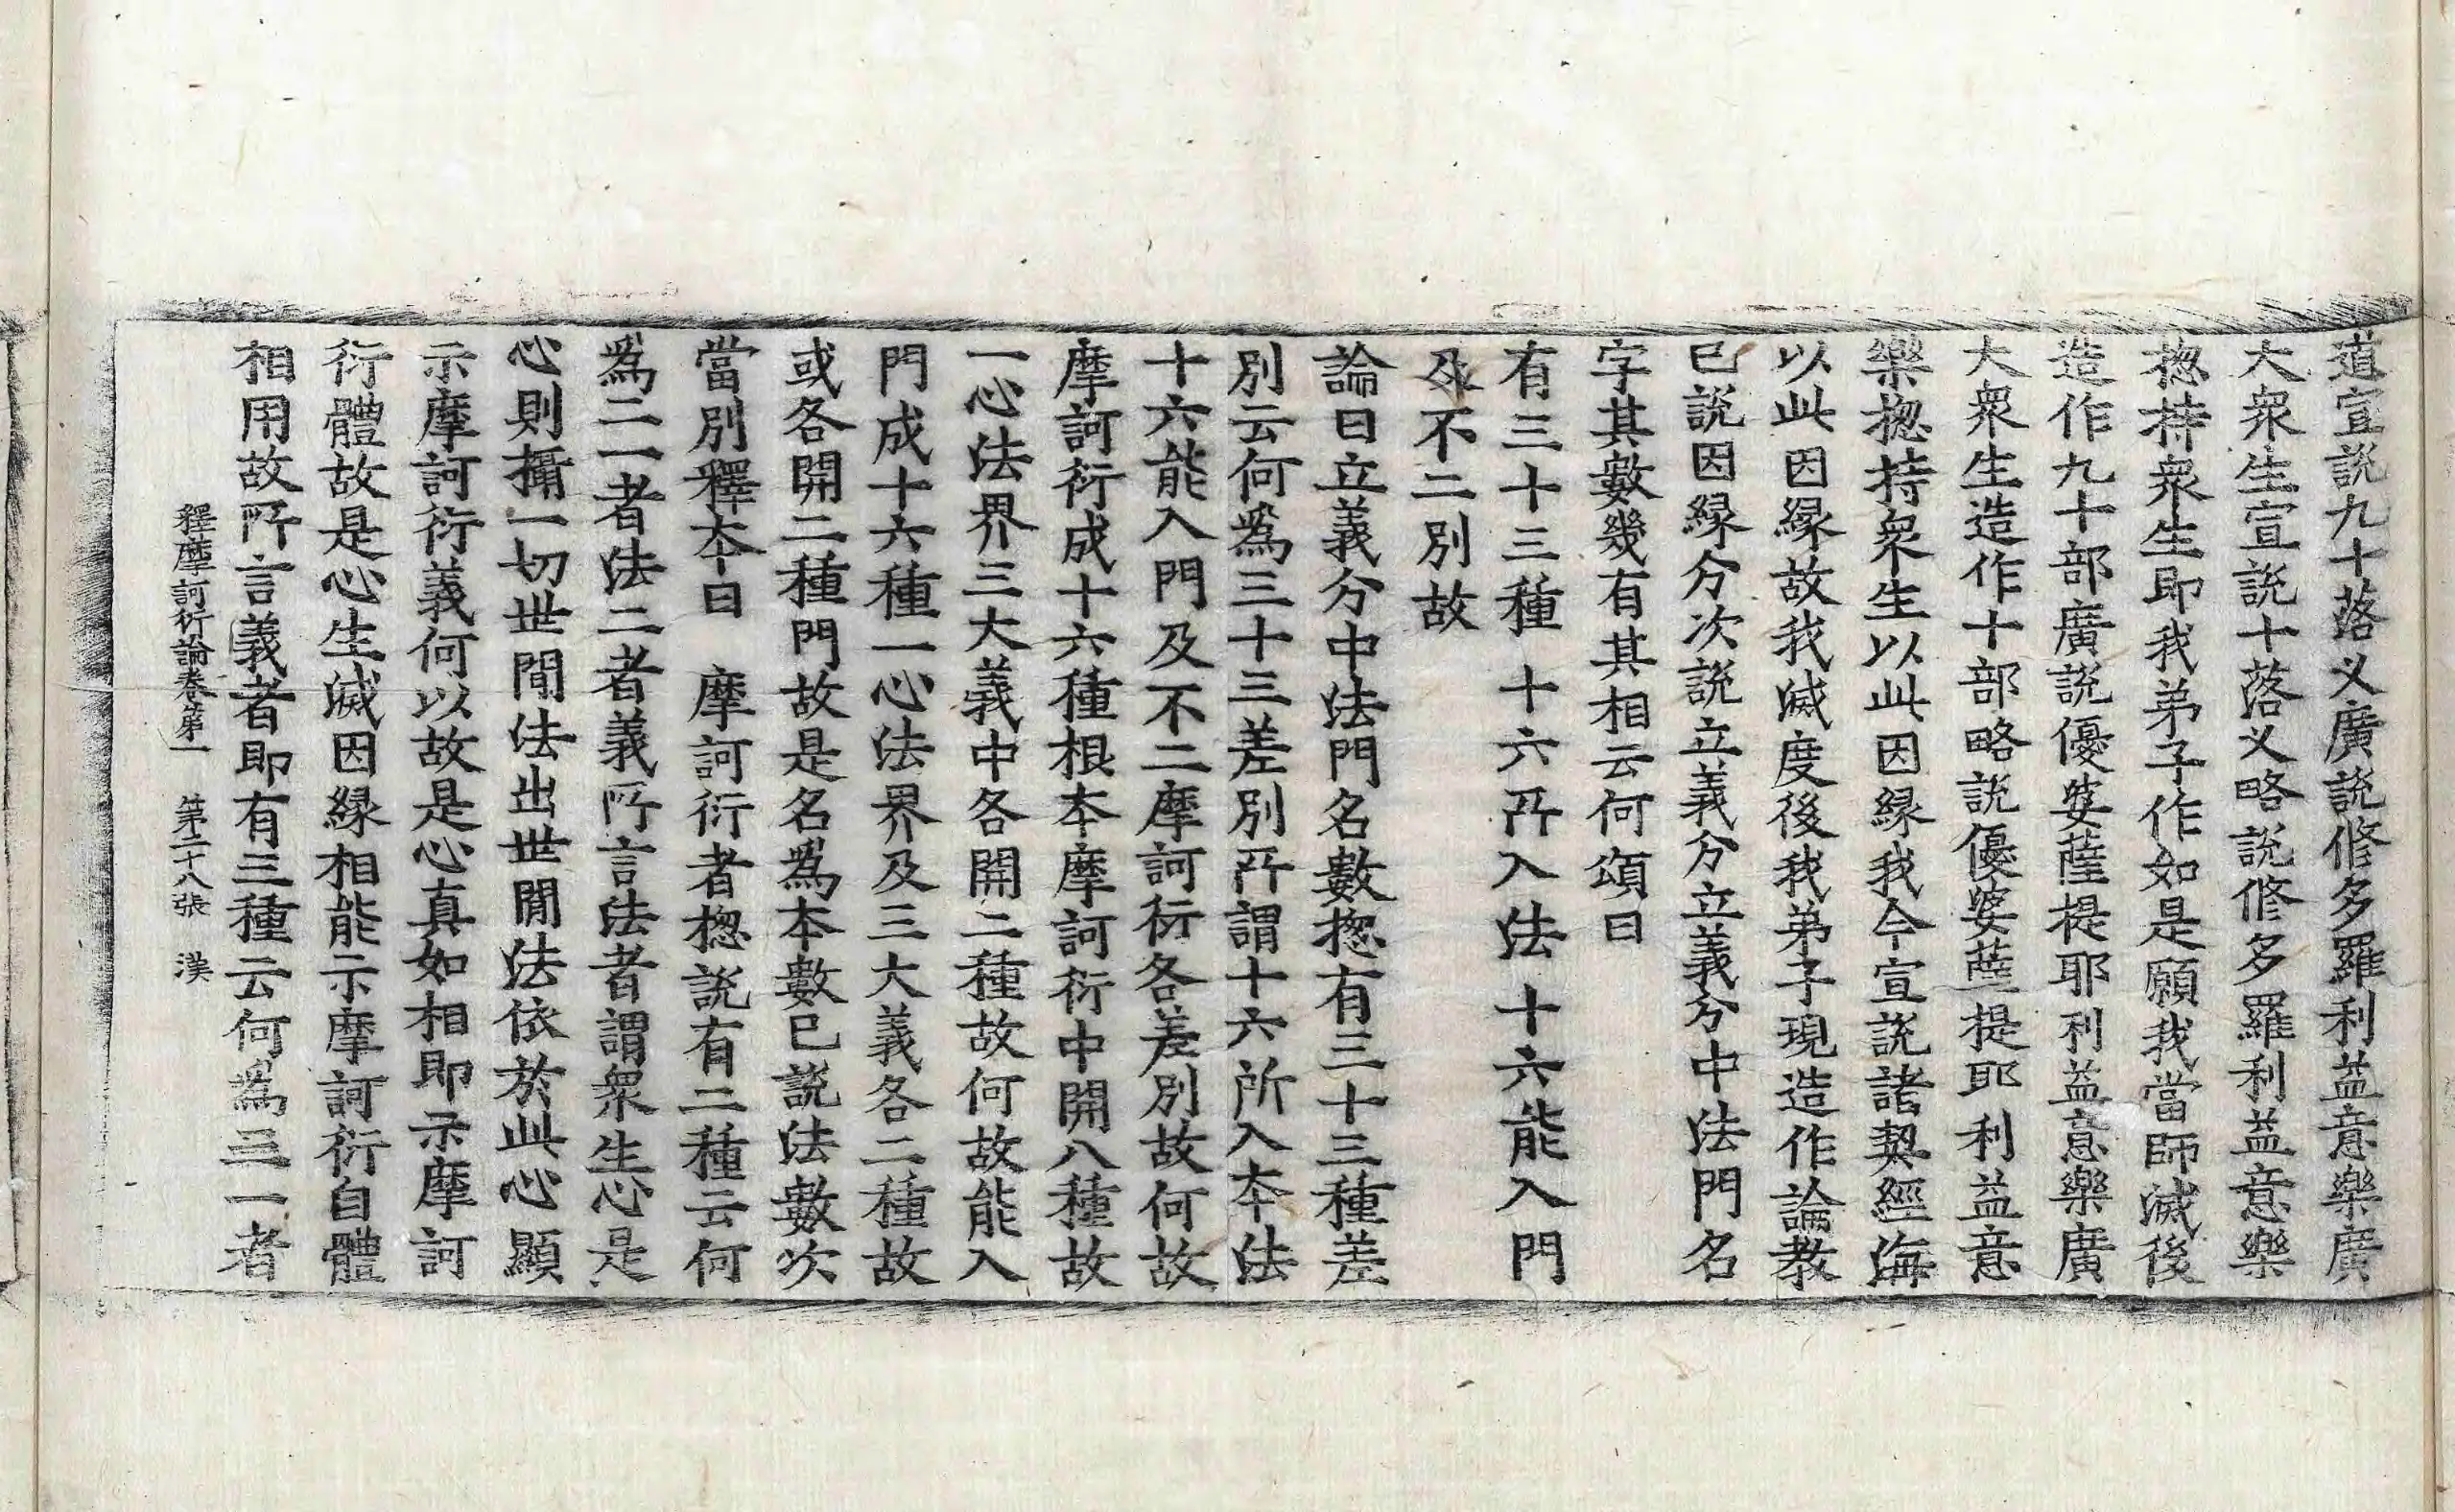 道宣說九十落义廣說修多羅利益意樂廣
大衆生宣說十落义略說修多羅利益意樂
揔持衆生即我弟子作如是願我當師滅後
造作九十部廣說優婆薩提耶利益意樂廣
大衆生造作十部略說優婆薩提耶利益意
樂揔持衆生以此因緣我今宣說諸契經海
以此因緣故我滅度後我弟子現造作論教
已說因緣分次說立義分立義分中法門名
字其數幾有其相云何頌曰
有三十三種 十六所入法 十六能入門
及不二別故
論曰立義分中法門名數揔有三十三種差
別云何爲三十三差別所謂十六所入本法
十六能入門及不二摩訶衍各差別故何故
摩訶衍成十六種根本摩訶衍中開八種故
一心法界三大義中各開二種故何故能入
門成十六種一心法界及三大義各二種故
或各開二種門故是名爲本數已說法數次
當別釋本曰 摩訶衍者揔說有二種云何
爲二一者法二者義所言法者謂衆生心是
心則攝一切世間法出世間法依於此心顯
示摩訶衍義何以故是心真如相即示摩訶
衍體故是心生滅因緣相能示摩訶衍自體
相用故所言義者即有三種云何爲三一者
釋摩訶衍論卷第一 第二十八張 漢